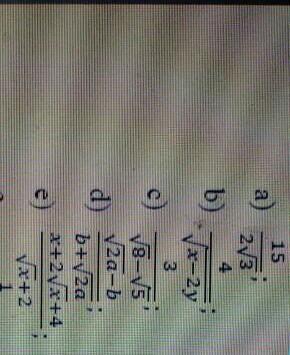 a) \frac{15}{2\sqrt{3}};
b) \frac{4}{\sqrt{x-2y}};
c) \frac{3}{\sqrt{8}-\sqrt{5}};
d) \frac{\sqrt{2a}-b}{b+\sqrt{2a}};
e) \frac{x+2\sqrt{x}+4}{\sqrt{x}+2};